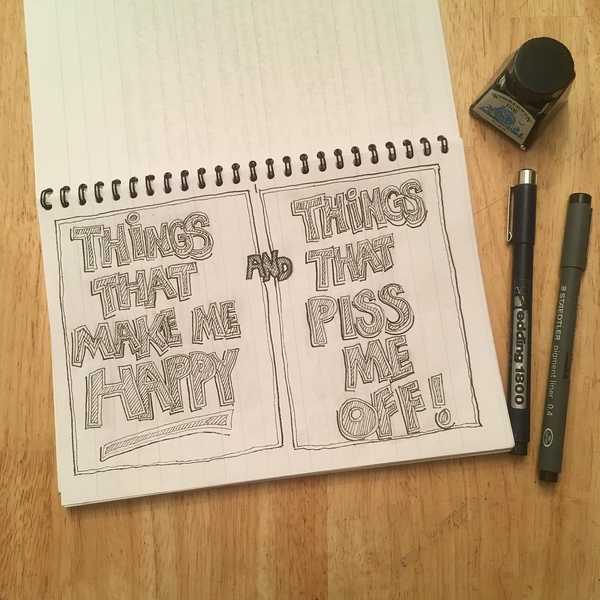 THiNGS
THAT
MAKE ME
HAPPY
AND
THiNGS
THAT
PISS
ME
OFF!
edding 1800
STAEDTLER pigment liner 0.4